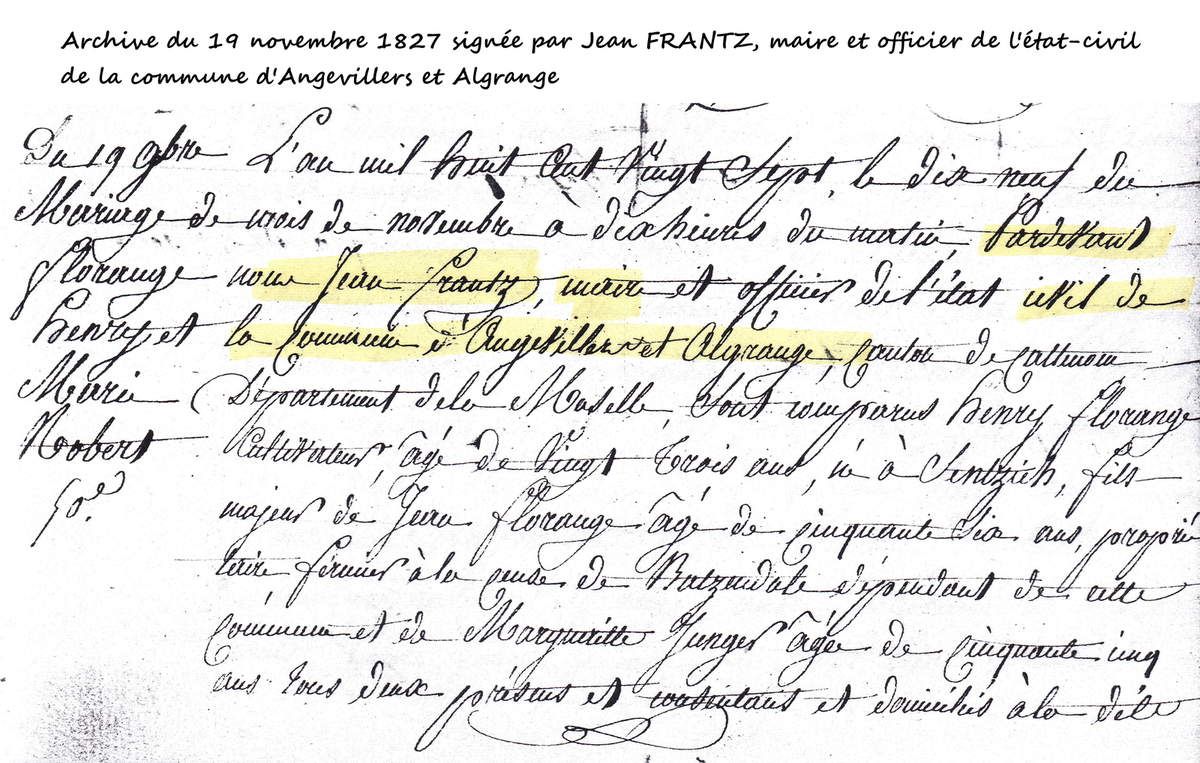 Archive du 19 novembre 1827 signée par Jean FRANTZ, maire et officier de l'état-civil
de la commune d'Angevillers et Algrange
Du 19 9bre
Mariage de
florange
henry et
Marie
Robert
50.e
L'an mil huit cent vingt Sept, le dix neuf du
mois de novembre a dix heures du matin, Pardevant
nous Jean frantz, maire et officier de l'état civil de
la Commune d'Angeviller et Algrange, Canton de Cattenom
Département dela Moselle, Sont comparus henry florange
Cultivateur, âgé de vingt trois ans, né à Sentzich, fils
majeur de Jean florange âgé de cinquante Six ans, proprié
taire fermier à la cense de Batzendale dépendant de cette
Commune et de Margueritte Junger âgée de Cinquante cinq
ans tous deux présens et consentans et domiciliés à la dite